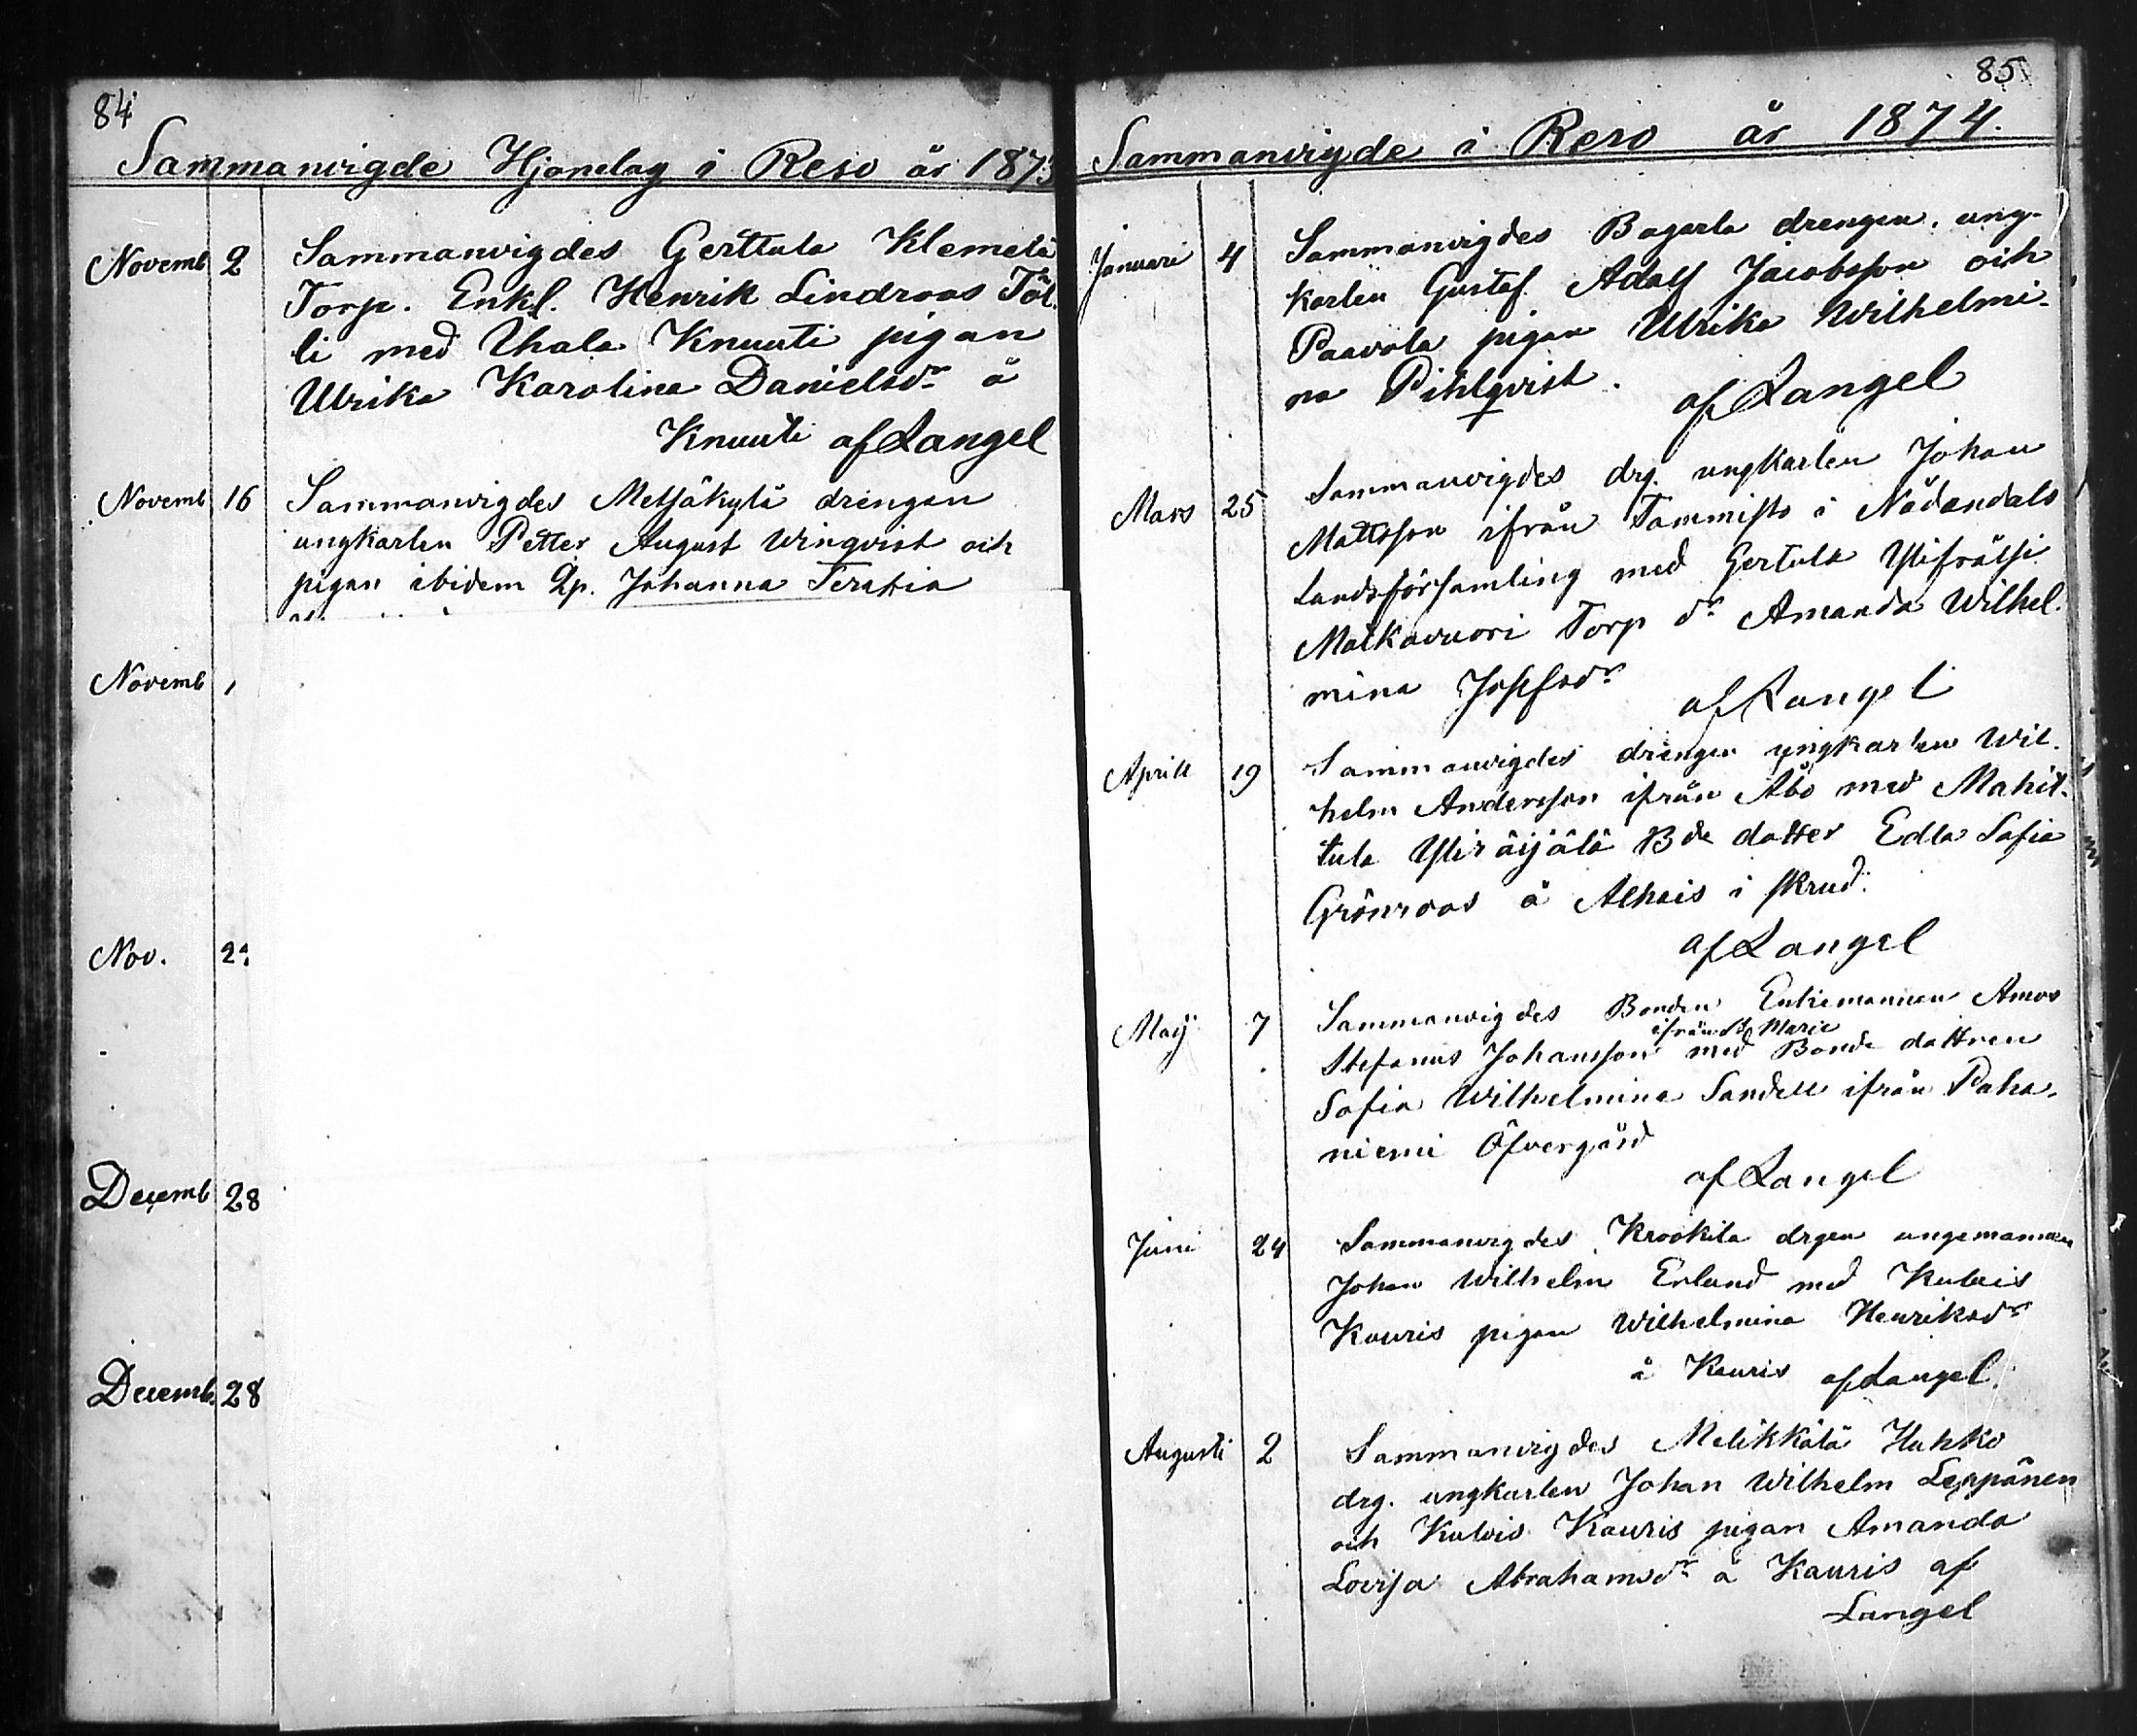 84
Sammanvigde Hjonelag i Reso år 1873
Novemb 2 Sammanvigdes Gerttula Klemelä
Torp. Enkl. Henrik Lindroos Töl
li med Uhala Knuuti pigan
Ulrika Karolina Danielsdr å
Knuuti af Langel
Novemb 16 Sammanvigdes Metsäkylä drengen
ungkarlen Petter August Winqvist och
pigan ibidem Qp. Johanna Teresia
Novemb
Nov. 2
Decemb 28
Decemb. 28
85
Sammanvigde i Reso år 1874.
Januari 4 Sammanvigdes Bagarla drengen, ung-
karlen Gustaf Adolf Jacobsson och
Paavola pigan Ulrika Wilhelmi-
na Pihlqvist. af Langel
Mars 25 Sammanvigdes drg. ungkarlen Johan
Mattsson ifrån Tammisto i Nådendals
Landsförsamling med Gertula Ylifrälsi
Matkavuori Torp dr Amanda Wilhel-
mina Josefsdr af Langel
Aprill 19 Sammanvigdes drengen ungkarlen Wil-
helm Andersson ifrån Åbo med Mahit-
tula Yliräijälä Bde dotter Edla Sofia
Grönroos å Alhais i skrud.
af Langel
Maij 7 Sammanvigdes Bonden Enkemannen Amos
ifrån St Marie
Stefanus Johansson med Bonde dottren
Sofia Wilhelmina Sandell ifrån Paha-
niemi Öfvergård
af Langel
Juni 24 Sammanvigdes Krookila drgen ungemannen
Johan Wilhelm Erlund med Kulvis
Kauris pigan Wilhelmina Henriksdr
å Kauris af Langel.
Augusti 2 Sammanvigdes Metikkälä Huhko
drg. ungkarlen Johan Wilhelm Leppänen
och Kulvis Kauris pigan Amanda
Lovisa Abrahamsdr å Kauris af
Langel